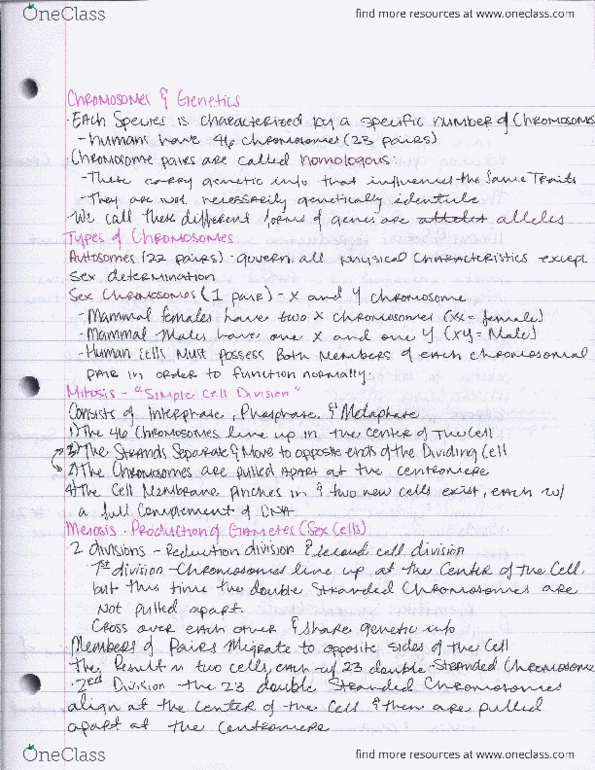 OneClass
find more resources at www.oneclass.com
Chromosomes & Genetics
·Each Species is characterized by a specific number of Chromosomes
-humans have 46 chromosomes (23 pairs)
Chromosome pairs are called homologous.
-These carry genetic info that influences the Same Traits
-They are not necessarily genetically
·We call these different forms of genes are alleles
Types of Chromosomes
Autosomes (22 pairs) - govern all physical characteristics except
Sex determination
Sex Chromosomes (1 pair) - X and Y chromosome
-Mammal females have two X chromosomes (xx = female)
-Mammal Males have one X and one Y (xy = Male)
-Human Cells Must possess Both Members of each chromosomal
pair in order to function normally.
Mitosis - "Simple Cell Division"
Consists of Interphase, Phosphase, & Metaphase
1) The 46 Chromosomes line up in the center of the cell
3) The Strands Separate & Move to opposite ends of the Dividing Cell
2) The Chromosomes are pulled apart at the centromere
4) The Cell Membrane pinches in & two new cells exist, each w/
a full Complement of DNA
Meiosis - Production of Gametes (Sex Cells)
·2 divisions - Reduction division & second cell division
1st division - Chromosomes line up at the Center of the Cell,
but this time the double Stranded Chromosomes are
Not pulled apart.
Cross over each other & share genetic info
Members of Pairs Migrate to opposite sides of the Cell
The Result is two cells, each w/ 23 double-Stranded Chromosome
·2nd Division - the 23 double Stranded Chromosomes
align at the center of the Cell & then are pulled
apart at the Centromere
OneClass
find more resources at www.oneclass.com